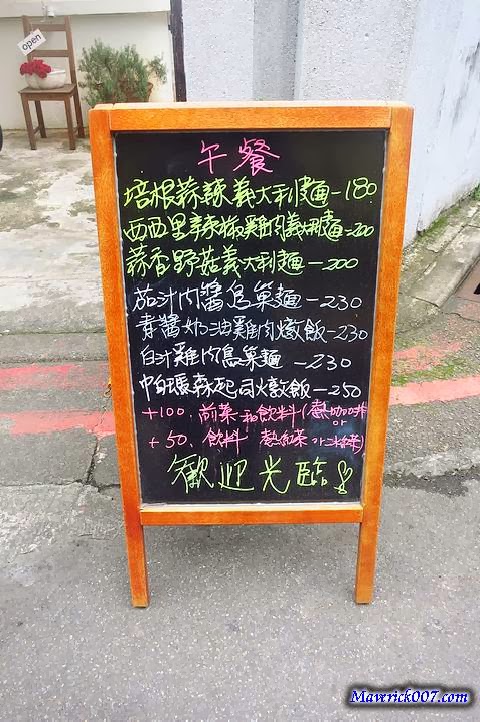 open
午餐
培根蒜辣義大利麵-180
西西里辣椒雞肉義大利麵-200
蒜香野菇義大利麵-200
茄汁肉醬鳥巢麵-230
青醬奶油雞肉燉飯-230
白汁雞肉鳥巢麵-230
帕瑪森起司燉飯-250
+100. 前菜和飲料(熱咖啡
or
+50. 飲料 熱紅茶 or 冰紅茶)
歡迎光臨
Maverick007.com